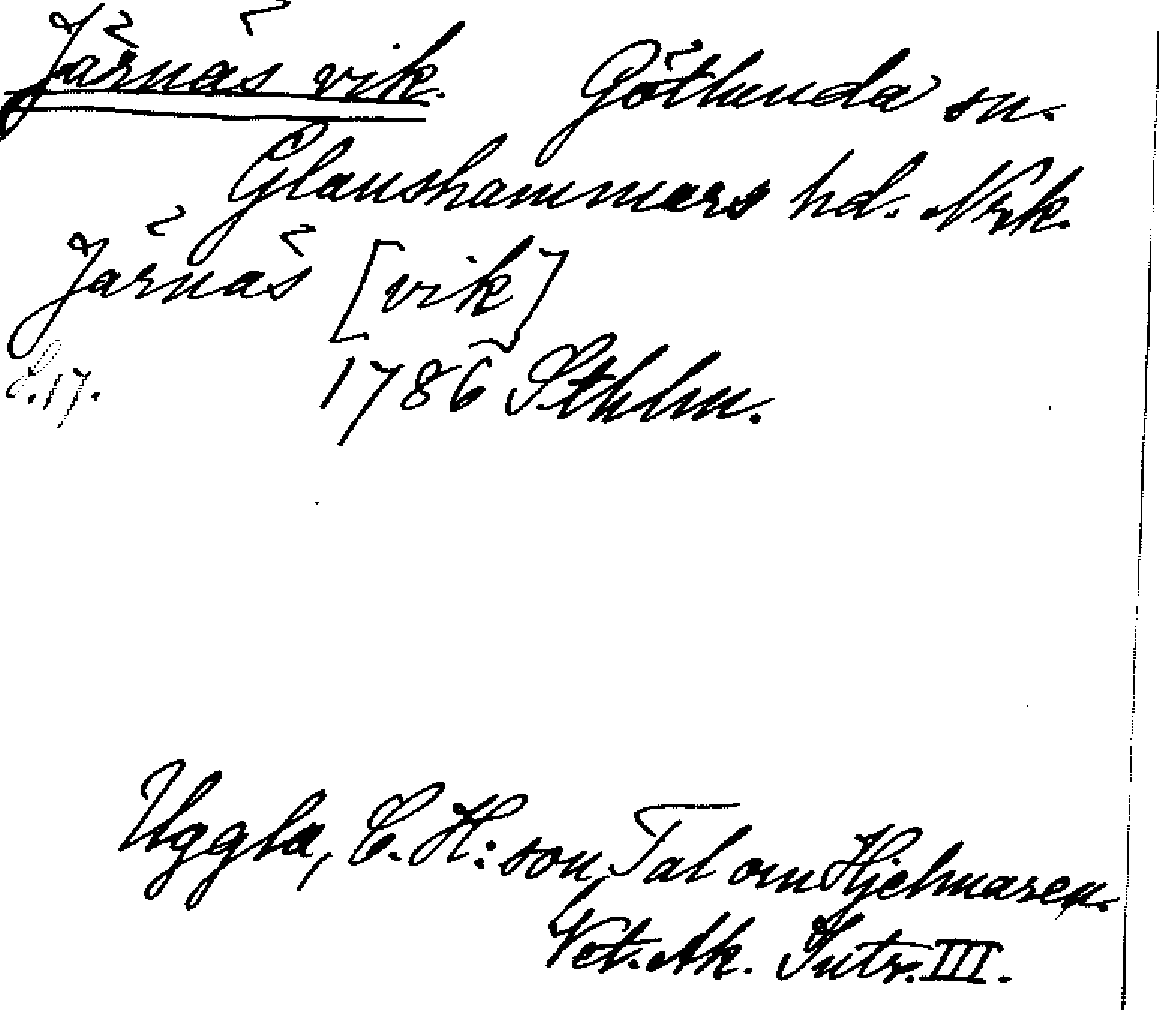 Järnäs vik. Götlunda sn.
Glanshammars hd. Nrk.
Järnäs [vik]
S. 17. 1786 Sthlm.
Uggla, C. H:son, Tal om Hjelmaren.
Vet. Ak. Intr. III.